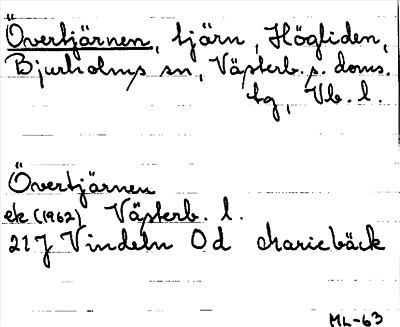 Övertjärnen, tjärn, Högliden,
Bjurholms sn, Västerb. s. doms.
tg, Vb. l.
Övertjärnen
ek (1962) Västerb. l.
21J Vindeln 0d Mariebäck
ML-63